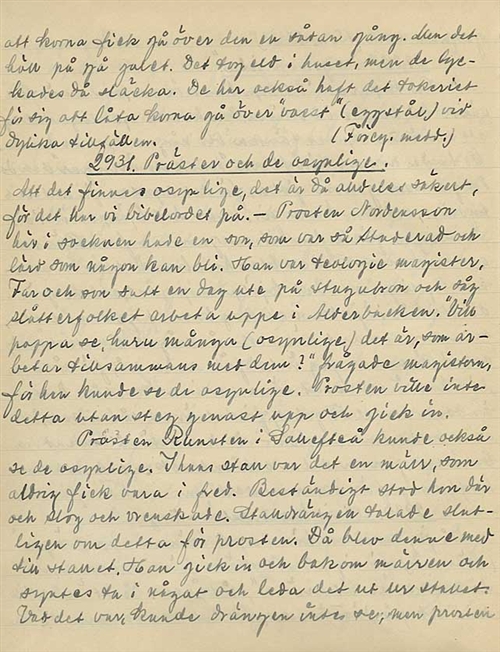 att korna fick gå över den en sådan gång. Men det
höll på gå galet. Det tog eld i huset, men de lyc-
kades då släcka. De har också haft det tokeriet
för sig att låta korna gå över "vasst" (eggstål) vid
dylika tillfällen. (Föreg. medd.)
2931. Präster och de osynlige.
Att det finnes osynlige, det är då alldeles säkert,
för det har vi bibelordet på. – Prosten Nordensson
här i socknen hade en son, som var så studerad och
lärd som någon kan bli. Han var teologie magister.
Far och son satt en dag ute på stugubron och såg
slåtterfolket arbeta uppe i Alderbacken. "Vill
pappa se, huru många (osynlige) det är, som ar-
betar tillsammans med dem?" frågade magistern,
för han kunde se de osynlige. Prosten ville inte
detta utan steg genast upp och gick in.
Prosten Runsten i Sollefteå kunde också
se de osynlige. I hans stall var det en märr, som
aldrig fick vara i fred. Beständigt stod hon där
och slog och vrenskade. Stalldrängen talade slut-
ligen om detta för prosten. Då blev denne med
till stallet. Han gick in och bakom märren och
syntes ta i något och leda det ut ur stallet.
Vad det var, kunde drängen intes se, men prosten